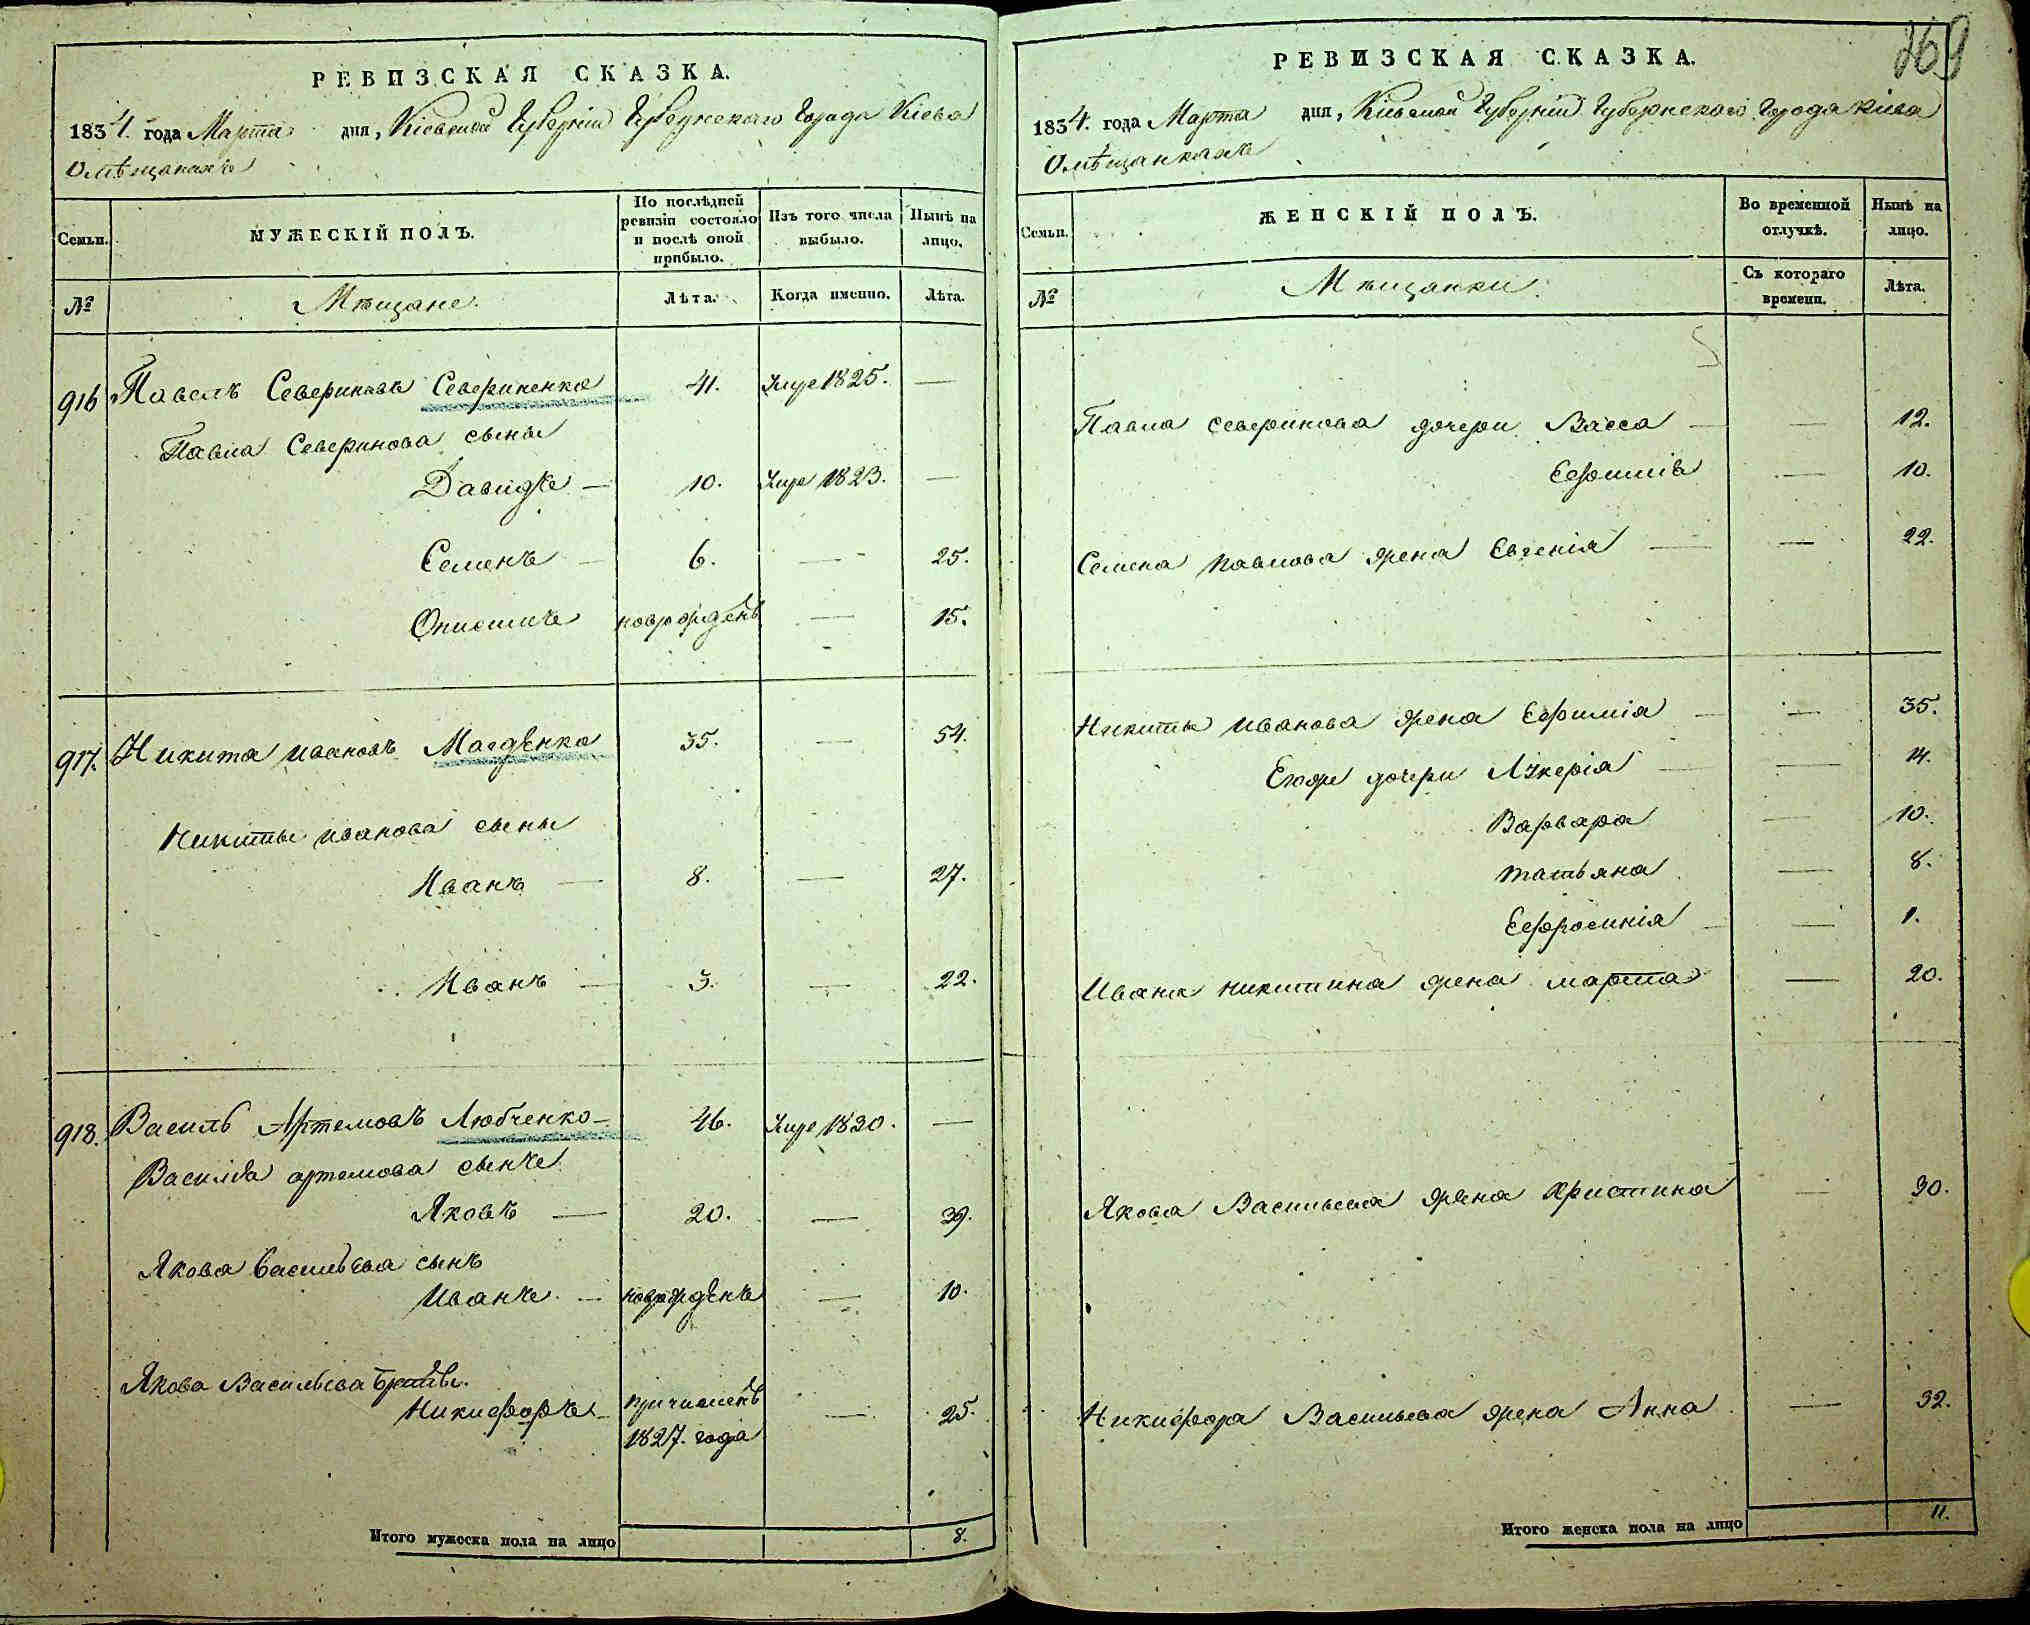 РЕВИЗСКАЯ СКАЗКА.
1834. года Марта дня, Кіевской Губерніи Губернскаго Города Кіева
О мѣщанахъ
Семьи.
МУЖЕСКІЙ ПОЛЪ.
По послѣдней ревизіи состояло и послѣ оной прибыло.
Изъ того числа выбыло.
Нынѣ на лицо.
№
Мѣщане.
Лѣта.
Когда именно.
Лѣта.
916 Павелъ Севериновъ Севериненко 41. Умре 1825. —
Павла Северинова сыны
Давидъ — 10. Умре 1823. —
Семенъ — 6. — 25.
Онисимъ новорожденъ — 15.
917. Никита Ивановъ Магденко 35. — 54.
Никиты Иванова сыны
Иванъ — 8. — 27.
Иванъ — 3. — 22.
918. Василь Артемовъ Любченко — 46. Умре 1830. —
Василя Артемова сынъ
Яковъ — 20. — 39.
Якова Васильева сынъ
Иванъ — новорожденъ — 10.
Якова Васильева братъ
Никифоръ — причисленъ — 25.
1827. года
Итого мужеска пола на лицо 8.
269
РЕВИЗСКАЯ СКАЗКА.
1834. года Марта дня, Кіевской Губерніи Губернскаго Города Кіева
О мѣщанкахъ
Семьи.
ЖЕНСКІЙ ПОЛЪ.
Во временной отлучкѣ.
Нынѣ на лицо.
№
Мѣщанки.
Съ котораго времени.
Лѣта.
Павла Северинова дочери Васса — — 12.
Ефимія — 10.
Семена Павлова жена Евгенія — — 22.
Никиты Иванова жена Ефимія — — 35.
Егожъ дочери Лукерія — — 14.
Варвара — 10.
Татьяна — 8.
Ефросинія — — 1.
Ивана Никитина жена Марта — 20.
Якова Васильева жена Христина — 30.
Никифора Васильева жена Анна — 32.
Итого женска пола на лицо 11.